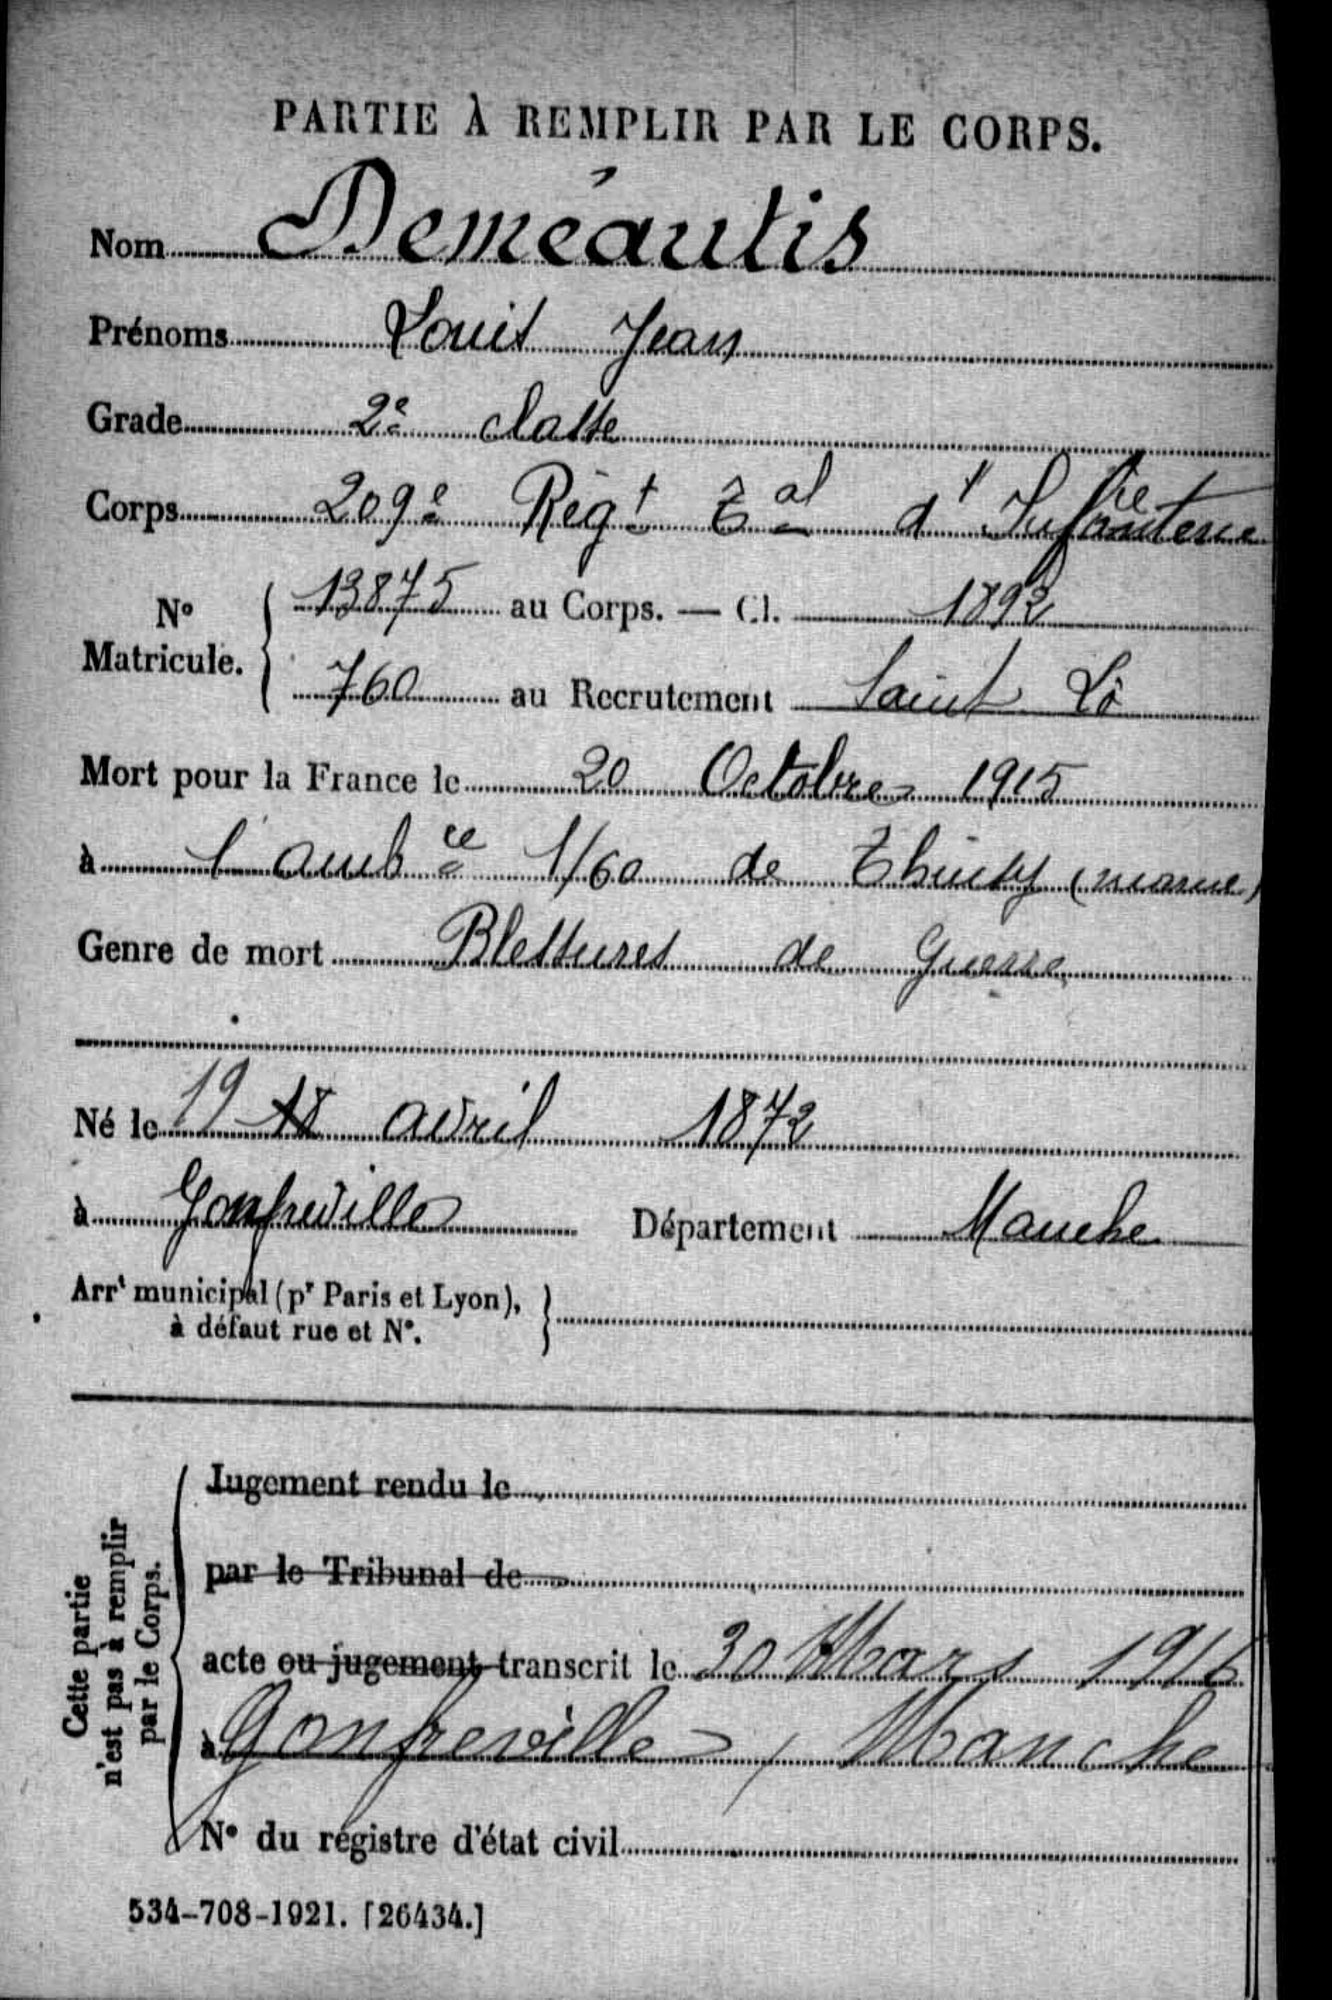 PARTIE À REMPLIR PAR LE CORPS.
Nom Deméautis
Prénoms Louis Jean
Grade 2e classe
Corps 209e Régt Tal d'Infanterie
N° Matricule. 13875 au Corps. — Cl. 1892
760 au Recrutement Saint Lô
Mort pour la France le 20 Octobre 1915
à l'ambce 1/60 de (marne)
Genre de mort Blessures de Guerre
Né le 19 18 avril 1872
à Gonfreville Département Manche
Arrt municipal (pr Paris et Lyon),
à défaut rue et N°.
Cette partie
n'est pas à remplir
par le Corps.
Jugement rendu le
par le Tribunal de
acte ou jugement transcrit le 30 Mars 1916
à Gonfreville, Manche
N° du registre d'état civil
534-708-1921. [26434.]